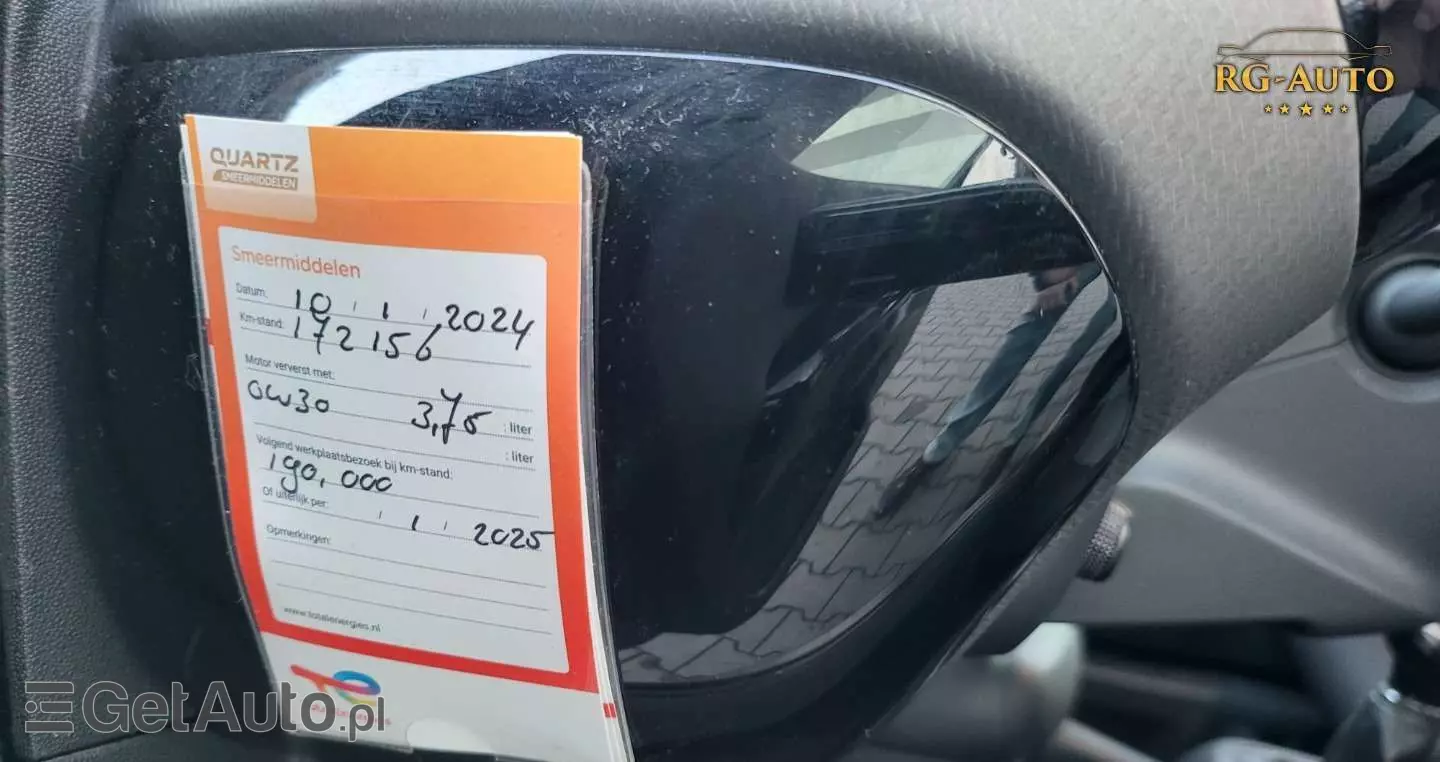 RG-AUTO
QUARTZ
SMEERMIDDELEN
Smeermiddelen
Datum: 10 / 1 / 2024
Km-stand: 172156
Motor ververst met:
0W30 3,75 : liter
: liter
Volgend werkplaatsbezoek bij km-stand:
190,000
Of uiterlijk per: / 1 / 2025
Opmerkingen:
www.totalenergies.nl
GetAuto.pl